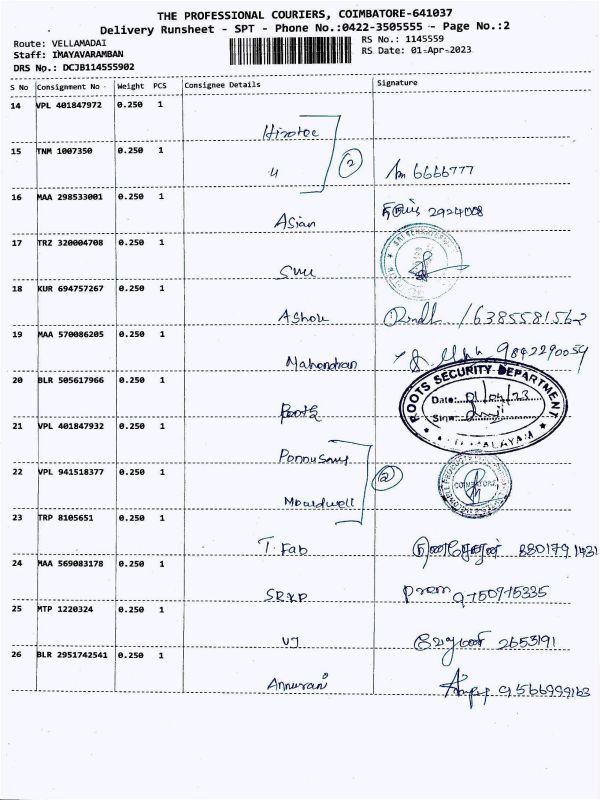 THE PROFESSIONAL COURIERS, COIMBATORE-641037
Delivery Runsheet - SPT - Phone No.:0422-3505555 - Page No.:2
Route: VELLAMADAI RS No.: 1145559
Staff: IMAYAVARAMBAN RS Date: 01-Apr-2023
DRS No.: DCJB114555902
S No Consignment No Weight PCS Consignee Details Signature
14 VPL 401847972 0.250 1
Hirotec
15 TNM 1007350 0.250 1
4 2 6666777
16 MAA 298533001 0.250 1
Asian 2924008
17 TRZ 320004708 0.250 1
18 KUR 694757267 0.250 1
Ashok 6385581562
19 MAA 570086205 0.250 1
Mahendran 9842290059
20 BLR 505617966 0.250 1
ROOTS SECURITY DEPARTMENT
Date: 01/04/23
Sign:
21 VPL 401847932 0.250 1
Ponnusamy
22 VPL 941518377 0.250 1
2 COIMBATORE
23 TRP 8105651 0.250 1
T. Fab 8801791431
24 MAA 569083178 0.250 1
SRXP prem 9750975335
25 MTP 1220324 0.250 1
VJ வேலுமணி 2653191
26 BLR 2951742541 0.250 1
9566999163